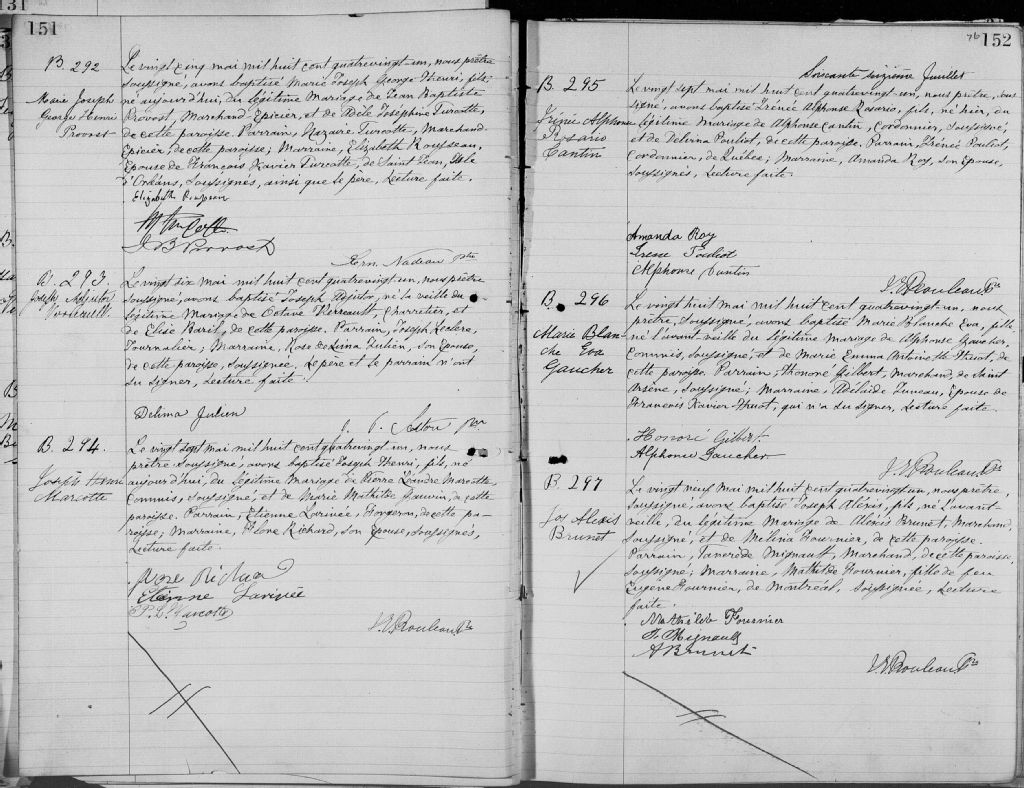 131
151
B. 292
Marie Joseph
George Henri
Provost
Le vingt cinq mai mil huit cent quatrevingt-un, nous prêtre
soussigné, avons baptisé Marie Joseph George Henri, fils,
né aujourd'hui, du légitime Mariage de Jean Baptiste
Provost, Marchand Epicier, et de Adèle Joséphine Turcotte,
de cette paroisse. Parrain, Nazaire Turcotte, Marchand
Epicier, de cette paroisse; Marraine, Elizabeth Rousseau,
Epouse de François Xavier Turcotte, de Saint Jean, Isle
d'Orléans, Soussignés, ainsi que le père, Lecture faite.
Elizabeth Rousseau
J. B Provost
Nadeau ptre
B. 293.
Joseph Adjutor
Le vingt six mai mil huit cent quatrevingt-un, nous prêtre
soussigné, avons baptisé Joseph Adjutor, né la veille du
légitime Mariage de Octave Perreault, Charretier, et
de Elise Baril, de cette paroisse. Parrain, Joseph Leclerc,
Journalier; Marraine, Rose de Lima Julien, Son Epouse,
de cette paroisse, Soussignée, Le père et le parrain n'ont
su signer, Lecture faite.
Delima Julien
B. 294.
Joseph Henri
Marcotte
Le vingt sept mai mil huit cent quatrevingt-un, nous
prêtre soussigné, avons baptisé Joseph Henri, fils, né
aujourd'hui, du légitime Mariage de Pierre Léandre Marcotte,
Commis, Soussigné, et de Marie Mathilde Gauvin, de cette
paroisse. Parrain, Etienne Larivée, Forgeron, de cette pa-
roisse; Marraine, Flore Richard, Son Epouse, Soussignés,
Lecture faite.
Etienne Larivée
P. L. Marcotte
J. E. Rouleau Ptre
76 152
Soixante sixième feuillet
B. 295
Irénée Alphonse
Rosario
Cantin
Le vingt sept mai mil huit cent quatrevingt-un, nous prêtre, sous
signé, avons baptisé Irénée Alphonse Rosario, fils, né hier, du
légitime Mariage de Alphonse Cantin, Cordonnier, Soussigné,
et de Delvina Pouliot, de cette paroisse. Parrain, Irénée Pouliot,
Cordonnier, de Québec; Marraine, Amanda Roy, Son Epouse,
Soussignés, Lecture faite.
Amanda Roy
Irénée Pouliot
Alphonse Cantin
J. E. Rouleau Ptre
B. 296
Marie Blan-
che Eva
Gaucher
Le vingt huit mai mil huit cent quatrevingt-un, nous
prêtre, soussigné, avons baptisé Marie Blanche Eva, fille
né l'avant veille du légitime mariage de Alphonse Gaucher,
Commis, soussigné, et de Marie Emma Antoinette Huot, de
cette paroisse. Parrain, Honoré Gilbert, Marchand, de Saint
Arsène, Soussigné; Marraine, Adélaïde Juneau, Epouse de
François Xavier Huot, qui n'a su signer, Lecture faite.
Honoré Gilbert
Alphonse Gaucher
J. E. Rouleau Ptre
B. 297
Jos Alexis
Brunet
Le vingt neuf mai mil huit cent quatrevingt-un, nous prêtre,
soussigné, avons baptisé Joseph Alexis, fils, né l'avant-
veille, du légitime Mariage de Alexis Brunet, Marchand,
Soussigné, et de Mélina Fournier, de cette paroisse.
Parrain, Tancrède Mignault, Marchand, de cette paroisse,
Soussigné; Marraine, Mathilde Fournier, fille de feu
Eugène Fournier, de Montréal, Soussignée, Lecture
faite.
Mathilde Fournier
T. Mignault
A Brunet
J. E. Rouleau Ptre